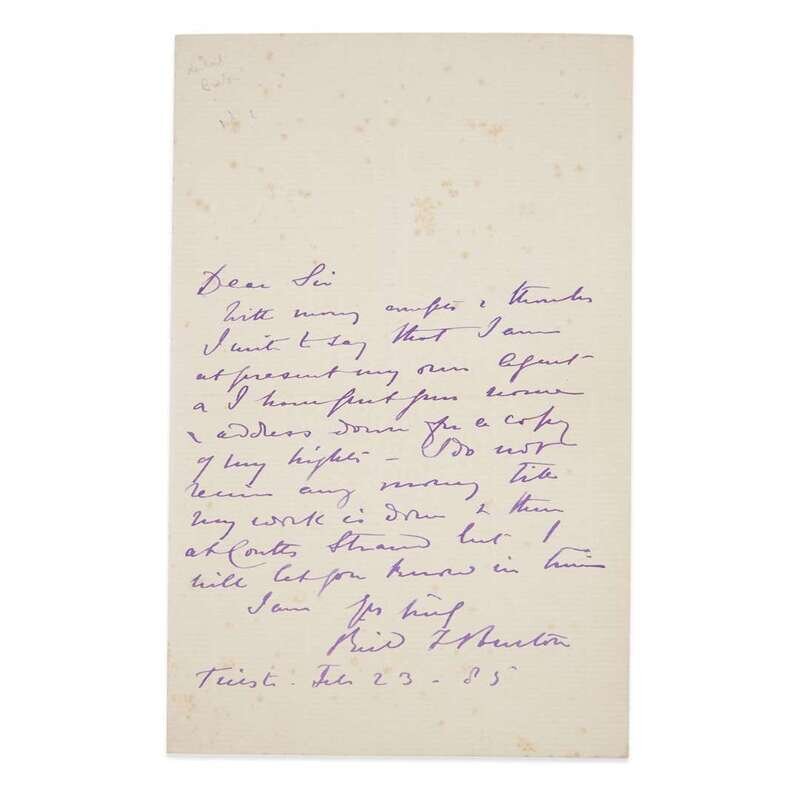 Dear Sir
With many compts & thanks
I write to say that I am
at present my own Agent
& I have put your name
& address down for a copy
of my Nights - I do not
receive any money till
my work is done & then
at Coutts Strand but I
will let you know in time
I am yrs truly
Richd F Burton
Trieste. Feb 23 - 85